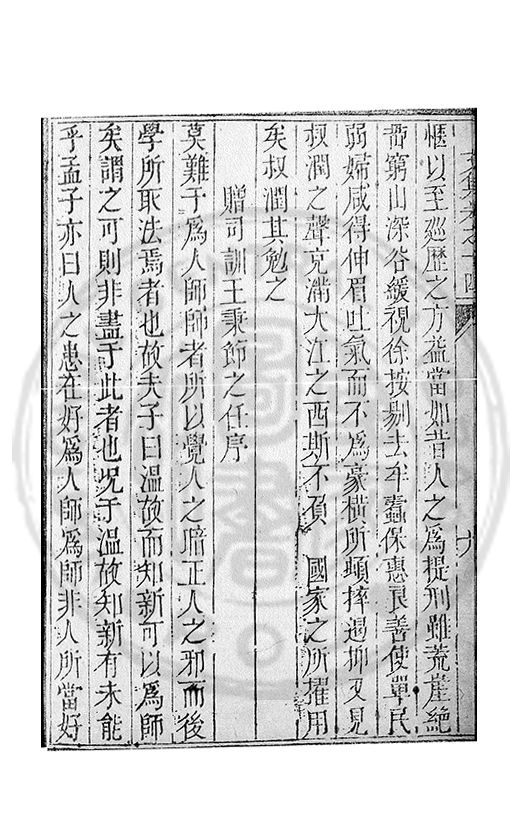 愜以至廵歷之方葢當如昔人之爲提刑雖荒崖絶
窮山深谷緩視徐按剔去牟蠧保惠良善使單民
弱婦咸得伸眉吐氣而不爲豪橫所頓摔遏抑又見
叔潤之聲充滿大江之西斯不負　國家之所擢用
矣叔潤其勉之
贈司訓王秉節之任序
莫難于爲人師師者所以覺人之暗正人之邪而後
學所取法焉者也故夫子曰温故而知新可以爲師
矣謂之可則非盡于此者也况于温故知新有未能
乎孟子亦曰人之患在好爲人師爲師非人所當好